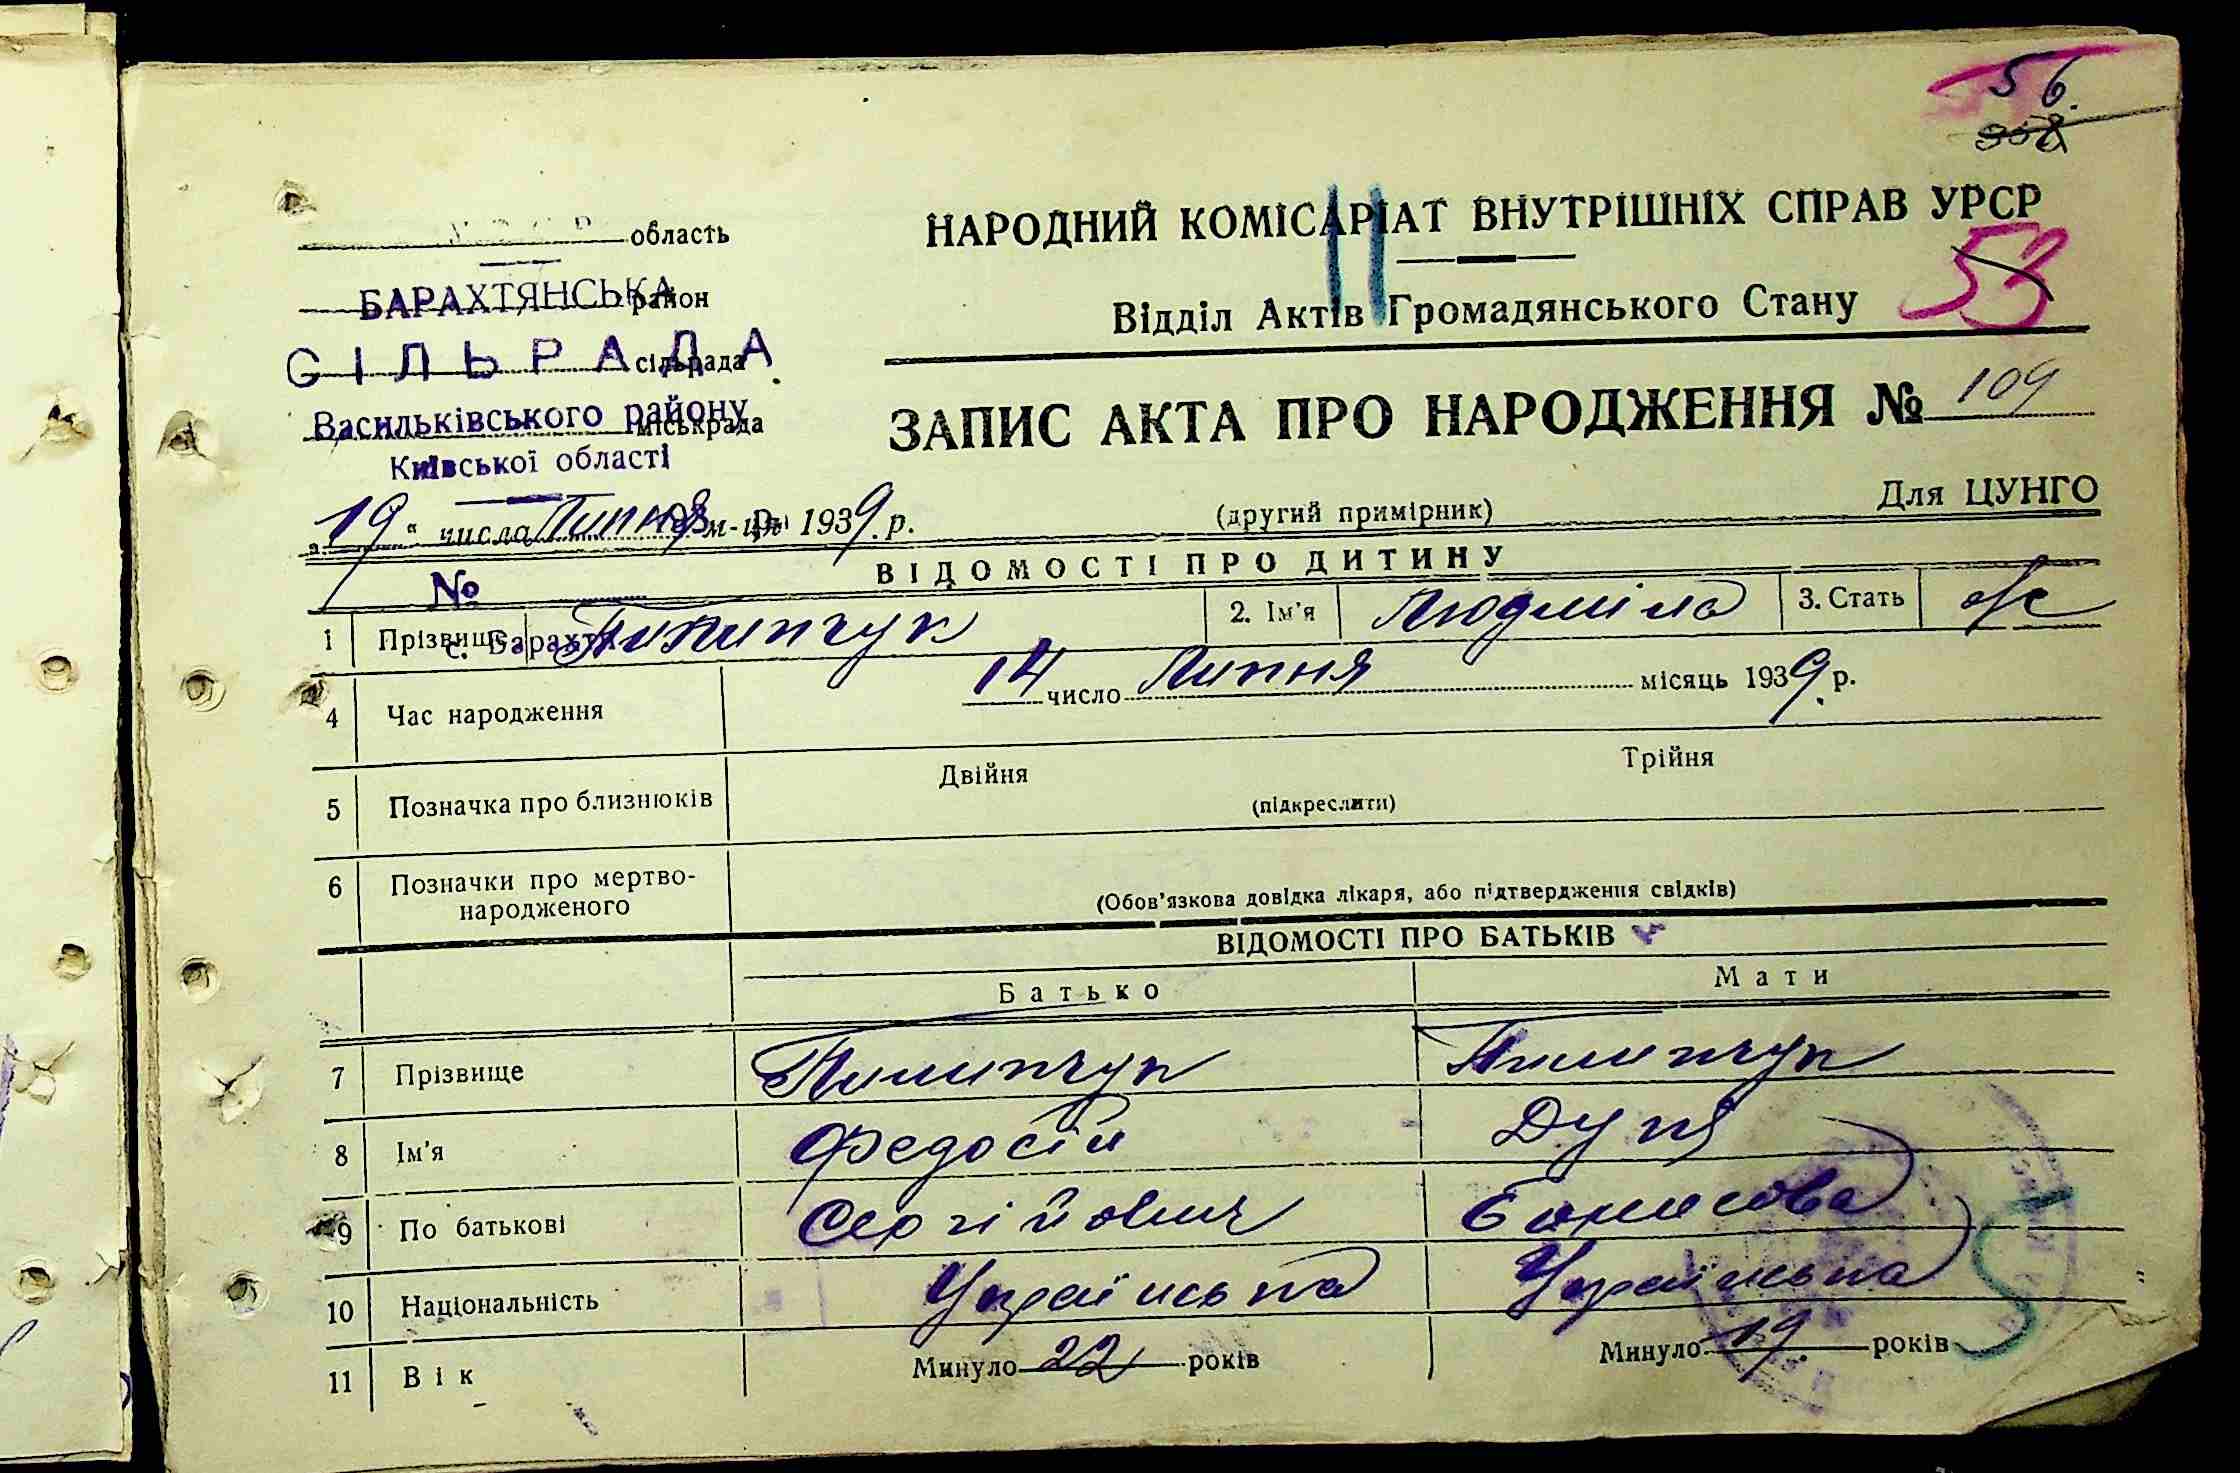 56.
358
НАРОДНИЙ КОМІСАРІАТ ВНУТРІШНІХ СПРАВ УРСР
53
Відділ Актів Громадянського Стану
область
БАРАХТЯНСЬКА район
СІЛЬРАДА сільрада
Васильківського району міськрада
Київської області
ЗАПИС АКТА ПРО НАРОДЖЕННЯ № 109
„19“ числа Липня м-ця 1939 р.
(другий примірник)
Для ЦУНГО
№
ВІДОМОСТІ ПРО ДИТИНУ
1 Прізвище Пилипчук 2. Ім'я Людміла 3. Стать ж
с. Барахти
4 Час народження 14 число Липня місяць 1939 р.
5 Позначка про близнюків Двійня Трійня
(підкреслити)
6 Позначки про мертво-
народженого
(Обов'язкова довідка лікаря, або підтвердження свідків)
ВІДОМОСТІ ПРО БАТЬКІВ
Батько Мати
7 Прізвище Пилипчук Пилипчук
8 Ім'я Федосій Дуня
9 По батькові Сергійович
10 Національність Українська Українська
11 Вік Минуло 22 років Минуло 19 років